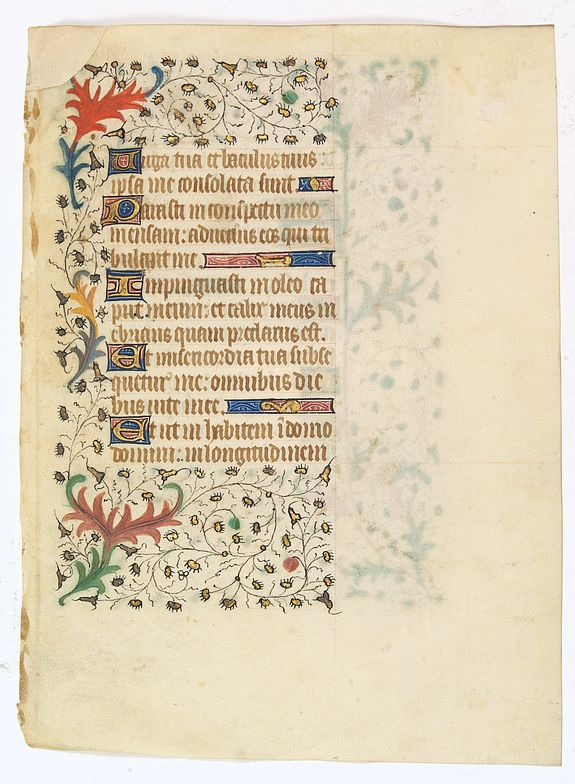 Virga tua et baculus tuus :
ipsa me consolata sunt
Parasti in conspectu meo
mensam : aduersus eos qui tri
bulant me
Impinguasti in oleo ca
put meum : et calix meus in
ebrians quam preclarus est .
Et misericordia tua subse
quetur me : omnibus die
bus uite mee
Et ut in habitem i domo
domini : in longitudinem